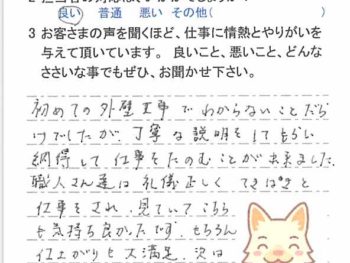 良い 普通 悪い その他(
3 お客さまの声を聞くほど、仕事に情熱とやりがいを
与えて頂いています。 良いこと、悪いこと、どんな
ささいな事でもぜひ、お聞かせ下さい。
初めての外壁工事でわからないことだら
けでしたが、丁寧な説明をしてもらい
納得して仕事をたのむことが出来ました。
職人さん達は礼儀正しく てきぱきと
仕事をされ、見ていてこちら
も気持ち良かったです。もちろん
仕上がりも大満足。次は